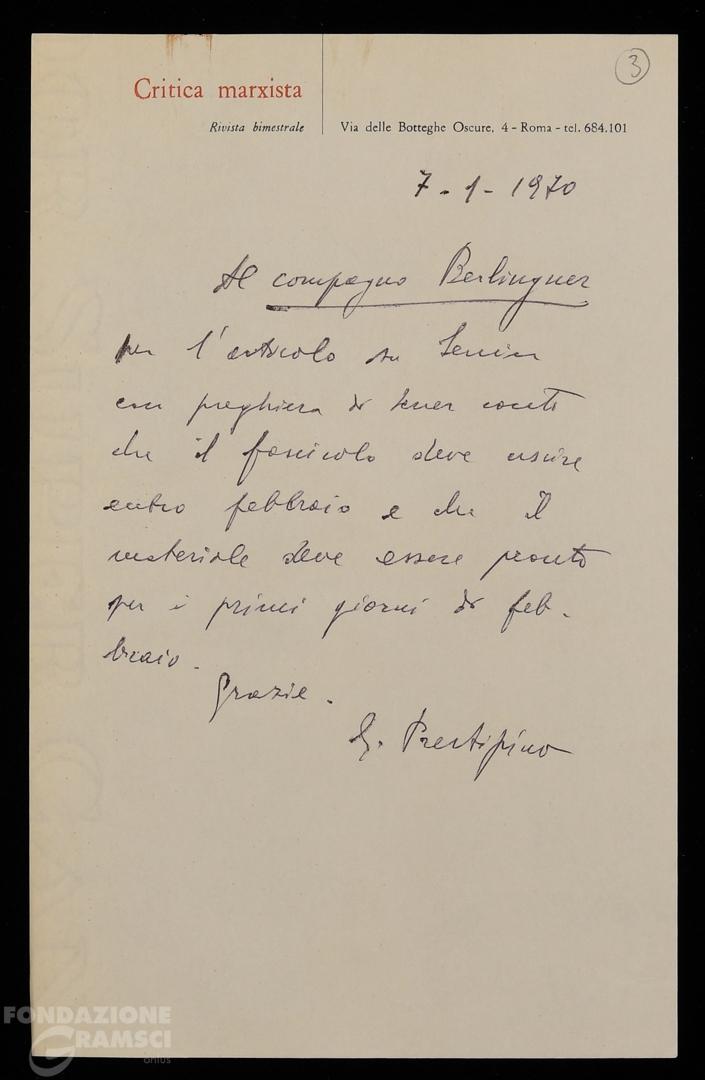 Critica marxista
Rivista bimestrale
Via delle Botteghe Oscure, 4 - Roma - tel. 684.101
3
7 - 1 - 1970
Al compagno Berlinguer
per l'articolo su Lenin
con preghiera di tener conto
che il fascicolo deve uscire
entro febbraio e che il
materiale deve essere pronto
per i primi giorni di feb-
braio.
Grazie.
G. Prestipino
FONDAZIONE
GRAMSCI
onlus